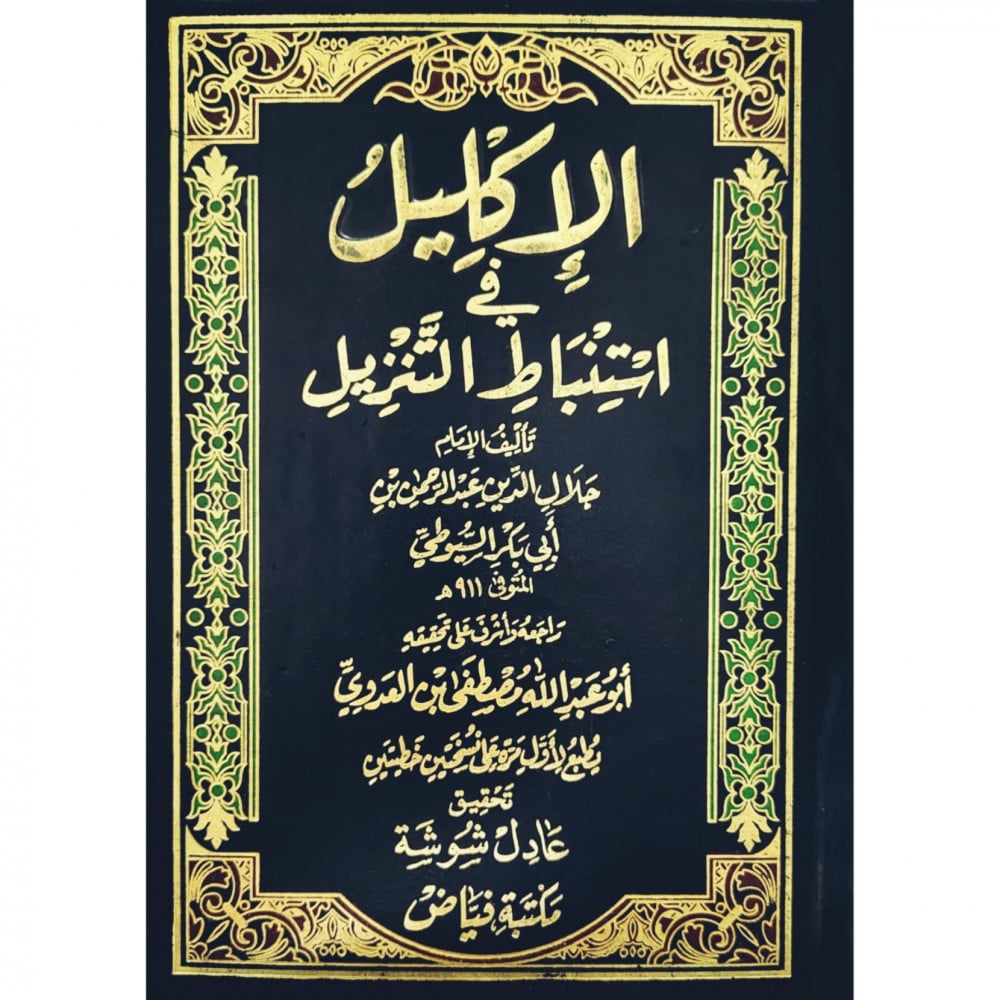 الإِكْلِيلُ
في
اسْتِنْبَاطِ التَّنْزِيلِ
تَأْلِيفُ الإِمَامِ
جَلَالِ الدِّينِ عَبْدِ الرَّحْمٰنِ بْنِ
أَبِي بَكْرِ السُّيُوطِيِّ
المُتَوفىٰ ٩١١ هـ
رَاجَعَهُ وَأَشْرَفَ عَلىٰ تَحْقِيقِهِ
أَبُو عَبْدِ اللهِ مُصْطَفَىٰ بْنِ العَدَوِيِّ
يُطبَعُ لأِوَّلِ مَرَّةٍ عَلىٰ نُسْخَتَيْنِ خَطِّيتَيْنِ
تَحْقِيق
عَادِلْ شُوشَة
مَكْتَبَة فَيَّاضْ